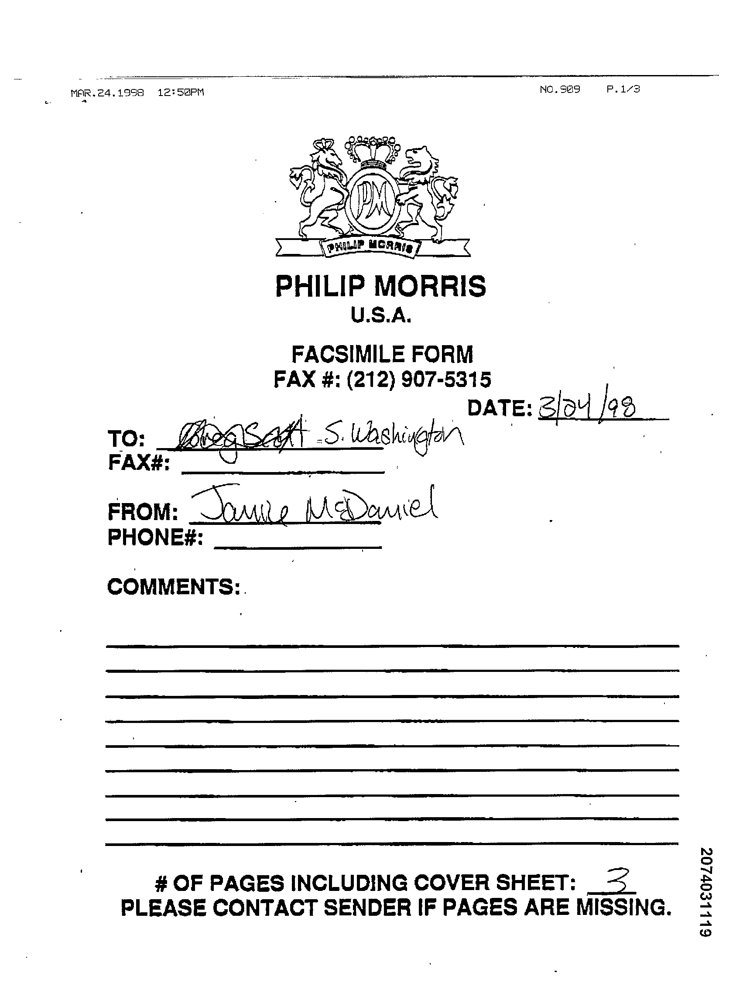 MAR.24.1998 12:50PM NO.909 P.1/3
PM
PHILIP MORRIS
PHILIP MORRIS
U.S.A.
FACSIMILE FORM
FAX #: (212) 907-5315
DATE: 3/24/98
TO: Greg Scott - S. Washington
FAX#:
FROM: Janice McDaniel
PHONE#:
COMMENTS:
# OF PAGES INCLUDING COVER SHEET: 3
PLEASE CONTACT SENDER IF PAGES ARE MISSING.
2074031119